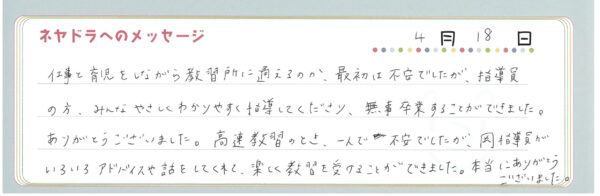 ネヤドラへのメッセージ
4月18日
仕事と育児をしながら教習所に通えるのか、最初は不安でしたが、指導員
の方、みんなやさしくわかりやすく指導してくださり、無事卒業することができました。
ありがとうございました。高速教習のとき、一人で不安でしたが、岡指導員が
いろいろアドバイスや話をしてくれて、楽しく教習を受けることができました。本当にありがとう
ございました。